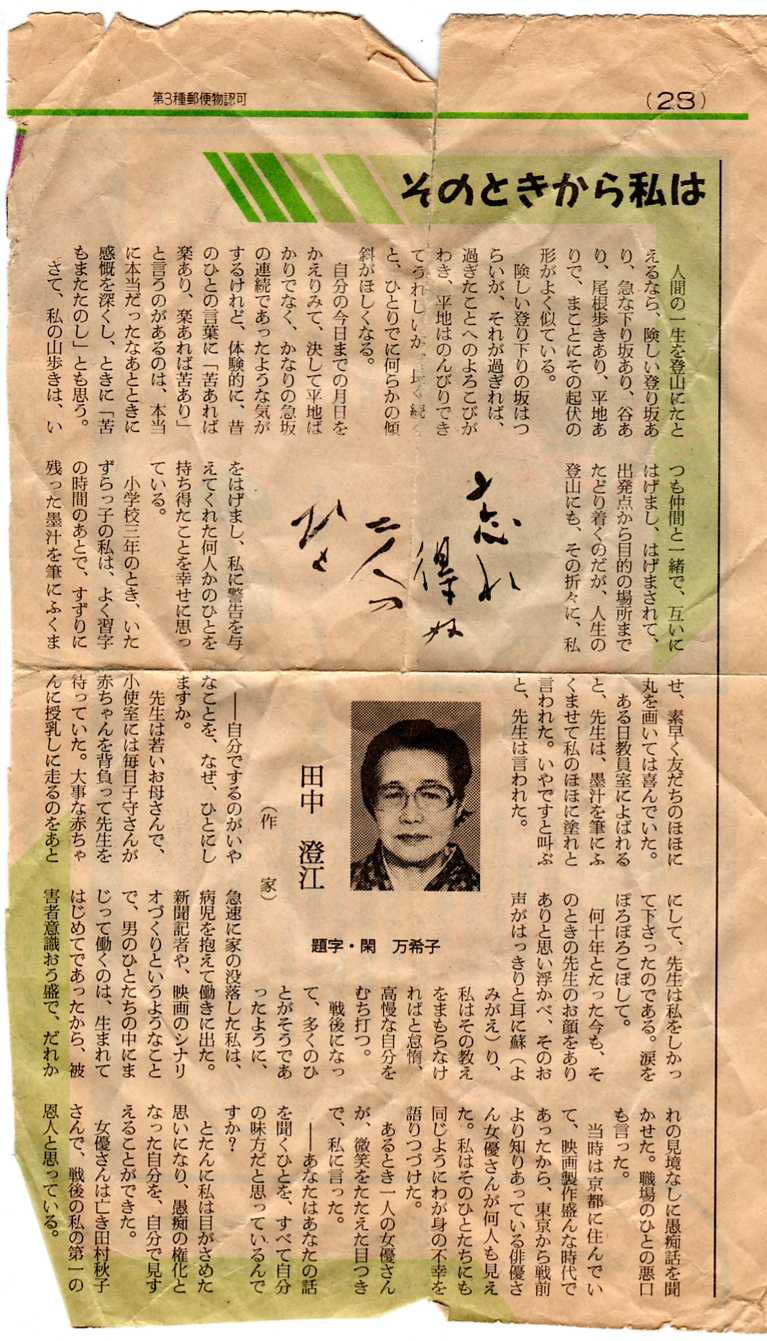 第3種郵便物認可
(23)
そのときから私は
人間の一生を登山にたと
えるなら、険しい登り坂あ
り、急な下り坂あり、谷あ
り、尾根歩きあり、平地あ
りで、まことにその起伏の
形がよく似ている。
険しい登り下りの坂はつ
らいが、それが過ぎれば、
過ぎたことへのよろこびが
わき、平地はのんびりでき
てうれしいが、長く続く
と、ひとりでに何らかの傾
斜がほしくなる。
自分の今日までの月日を
かえりみて、決して平地ば
かりでなく、かなりの急坂
の連続であったような気が
するけれど、体験的に、昔
のひとの言葉に「苦あれば
楽あり、楽あれば苦あり」
と言うのがあるのは、本当
に本当だったなあとときに
感慨を深くし、ときに「苦
もまたたのし」とも思う。
さて、私の山歩きは、い
つも仲間と一緒で、互いに
はげまし、はげまされて、
出発点から目的の場所まで
たどり着くのだが、人生の
登山にも、その折々に、私
忘れ
得ぬ
二人の
ひと
をはげまし、私に警告を与
えてくれた何人かのひとを
持ち得たことを幸せに思っ
ている。
小学校三年のとき、いた
ずらっ子の私は、よく習字
の時間のあとで、すずりに
残った墨汁を筆にふくま
せ、素早く友だちのほほに
丸を画いては喜んでいた。
ある日教員室によばれる
と、先生は、墨汁を筆にふ
くませて私のほほに塗れと
言われた。いやですと叫ぶ
と、先生は言われた。
田中 澄江
(作 家)
題字・閑 万希子
――自分でするのがいや
なことを、なぜ、ひとにし
ますか。
先生は若いお母さんで、
小使室には毎日子守さんが
赤ちゃんを背負って先生を
待っていた。大事な赤ちゃ
んに授乳しに走るのをあと
にして、先生は私をしかっ
て下さったのである。涙を
ぽろぽろこぼして。
何十年とたった今も、そ
のときの先生のお顔をあり
ありと思い浮かべ、そのお
声がはっきりと耳に蘇（よ
みがえ）り、
私はその教え
をまもらなけ
ればと怠惰、
高慢な自分を
むち打つ。
戦後になっ
て、多くのひ
とがそうであ
ったように、
急速に家の没落した私は、
病児を抱えて働きに出た。
新聞記者や、映画のシナリ
オづくりというようなこと
で、男のひとたちの中にま
じって働くのは、生まれて
はじめてであったから、被
害者意識おう盛で、だれか
れの見境なしに愚痴話を聞
かせた。職場のひとの悪口
も言った。
当時は京都に住んでい
て、映画製作盛んな時代で
あったから、東京から戦前
より知りあっている俳優さ
ん女優さんが何人も見え
た。私はそのひとたちにも
同じようにわが身の不幸を
語りつづけた。
あるとき一人の女優さん
が、微笑をたたえた目つき
で、私に言った。
――あなたはあなたの話
を聞くひとを、すべて自分
の味方だと思っているんで
すか？
とたんに私は目がさめた
思いになり、愚痴の権化と
なった自分を、自分で見す
えることができた。
女優さんは亡き田村秋子
さんで、戦後の私の第一の
恩人と思っている。